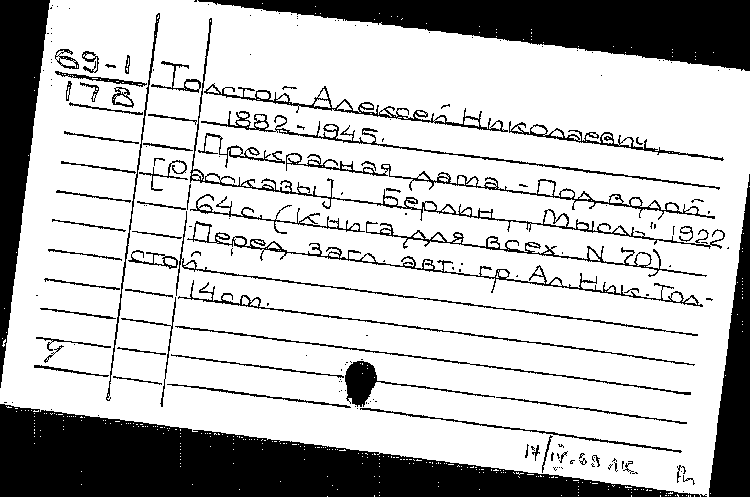 69-1
178
Толстой, Алексей Николаевич,
1882-1945.
Прекрасная дама. - Под водой.
[Рассказы]. Берлин, "Мысль", 1922.
64 с. (Книга для всех. N 70).
Перед загл. авт.: гр. Ал. Ник. Тол-
стой.
14 cm.
у
17/IV-69 ЛК